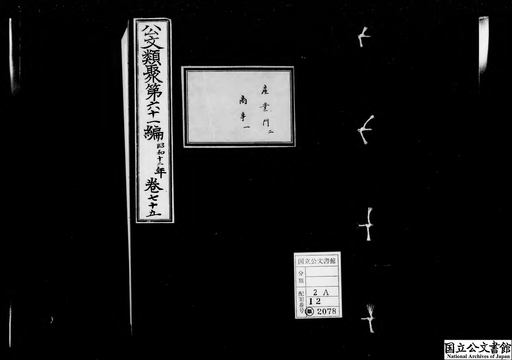 公文類聚第六十一編昭和十二年巻七十五
産業門二
商事一
国立公文書館
分類
配架番号
2A
12
類 2078
国立公文書館
National Archives of Japan